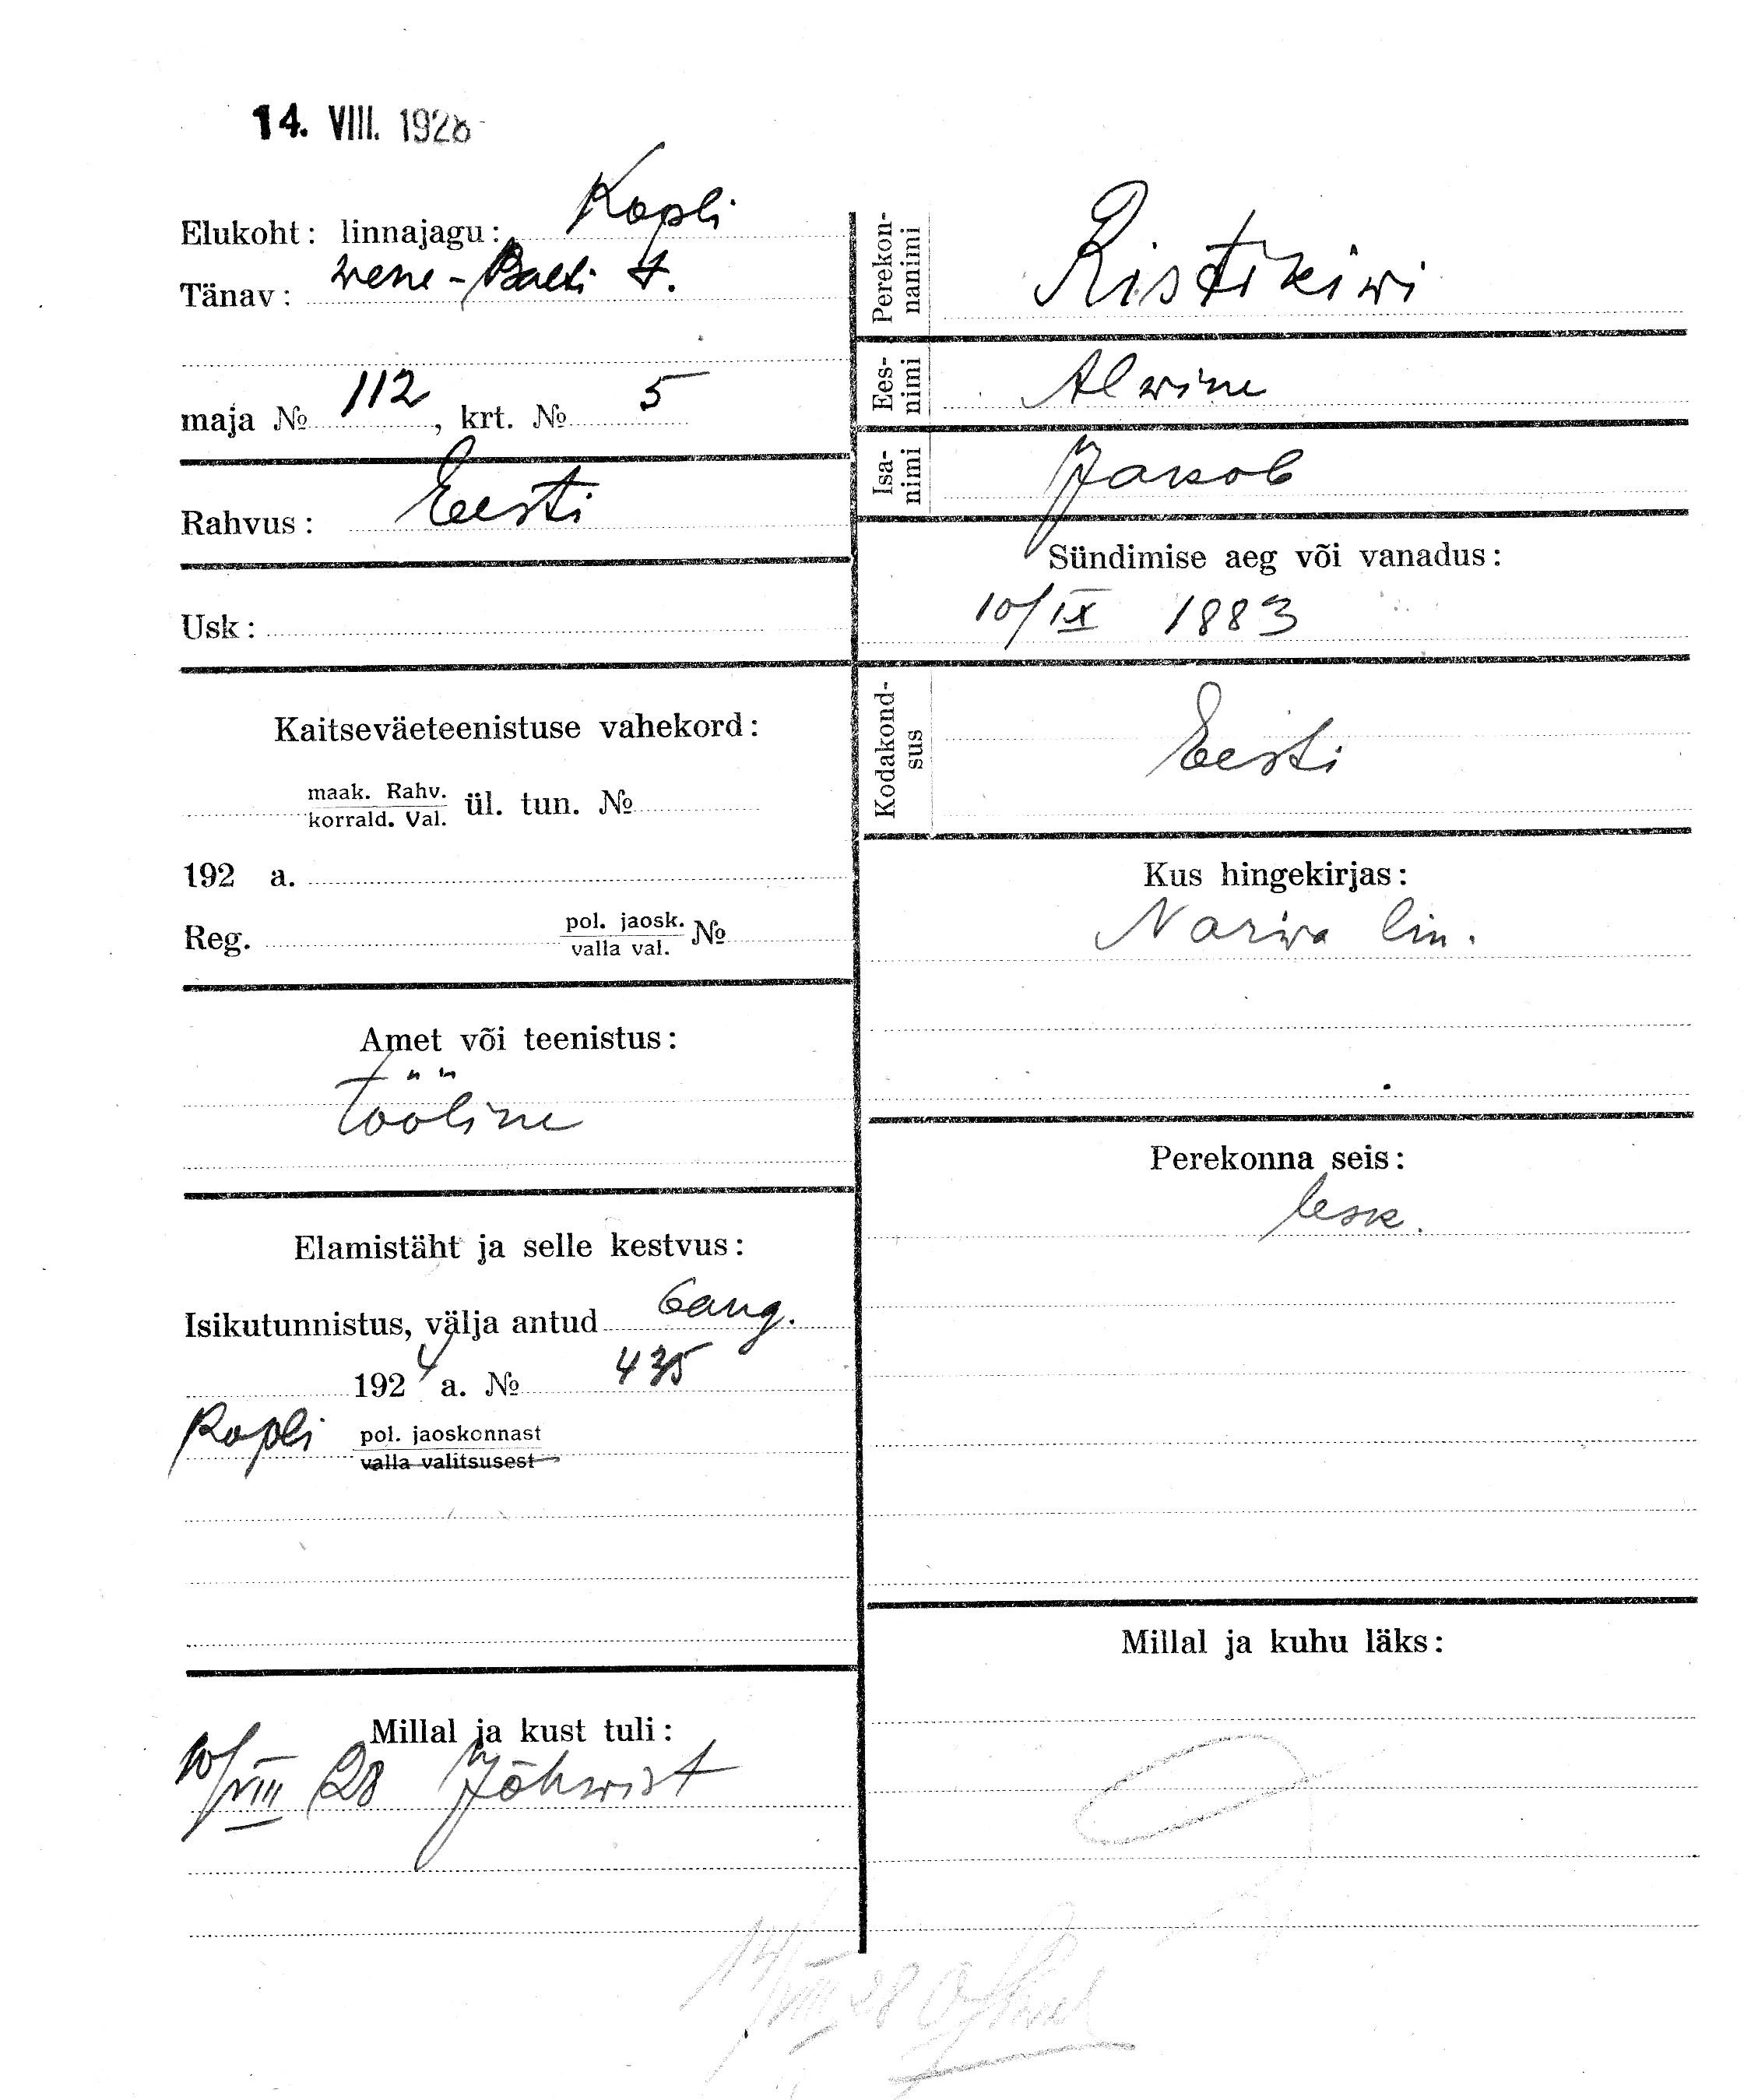 14. VIII. 1928
Elukoht: linnajagu: Kopli
Tänav: Wene-Balti t.
maja № 112, krt. № 5
Rahvus: Eesti
Usk:
Kaitseväeteenistuse vahekord:
maak. Rahv.
korrald. Val. ül. tun. №
192 a.
Reg. pol. jaosk.
valla val. №
Amet või teenistus:
tööline
Elamistäht ja selle kestvus:
Isikutunnistus, välja antud 6 aug.
1924 a. № 435
Kopli pol. jaoskonnast
valla valitsusest
Millal ja kust tuli:
10/VIII 28 Jõhwist
Perekon-
nanimi
Ristikiwi
Ees-
nimi
Alwine
Isa-
nimi
Jakob
Sündimise aeg või vanadus:
10/IX 1883
Kodakond-
sus
Eesti
Kus hingekirjas:
Narwa lin.
Perekonna seis:
lesk.
Millal ja kuhu läks:
14/VIII 28